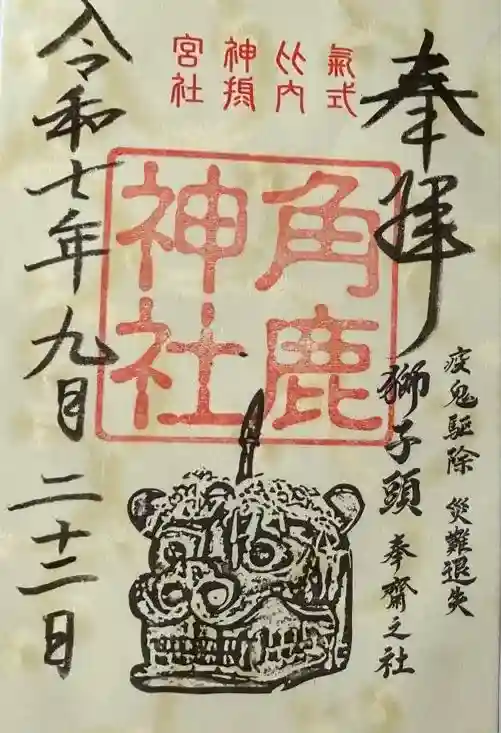 奉拝
疫鬼駆除 災難退失
獅子頭 奉齋之社
氣式
比内
神
宮社
角鹿
神社
令和七年九月二十二日